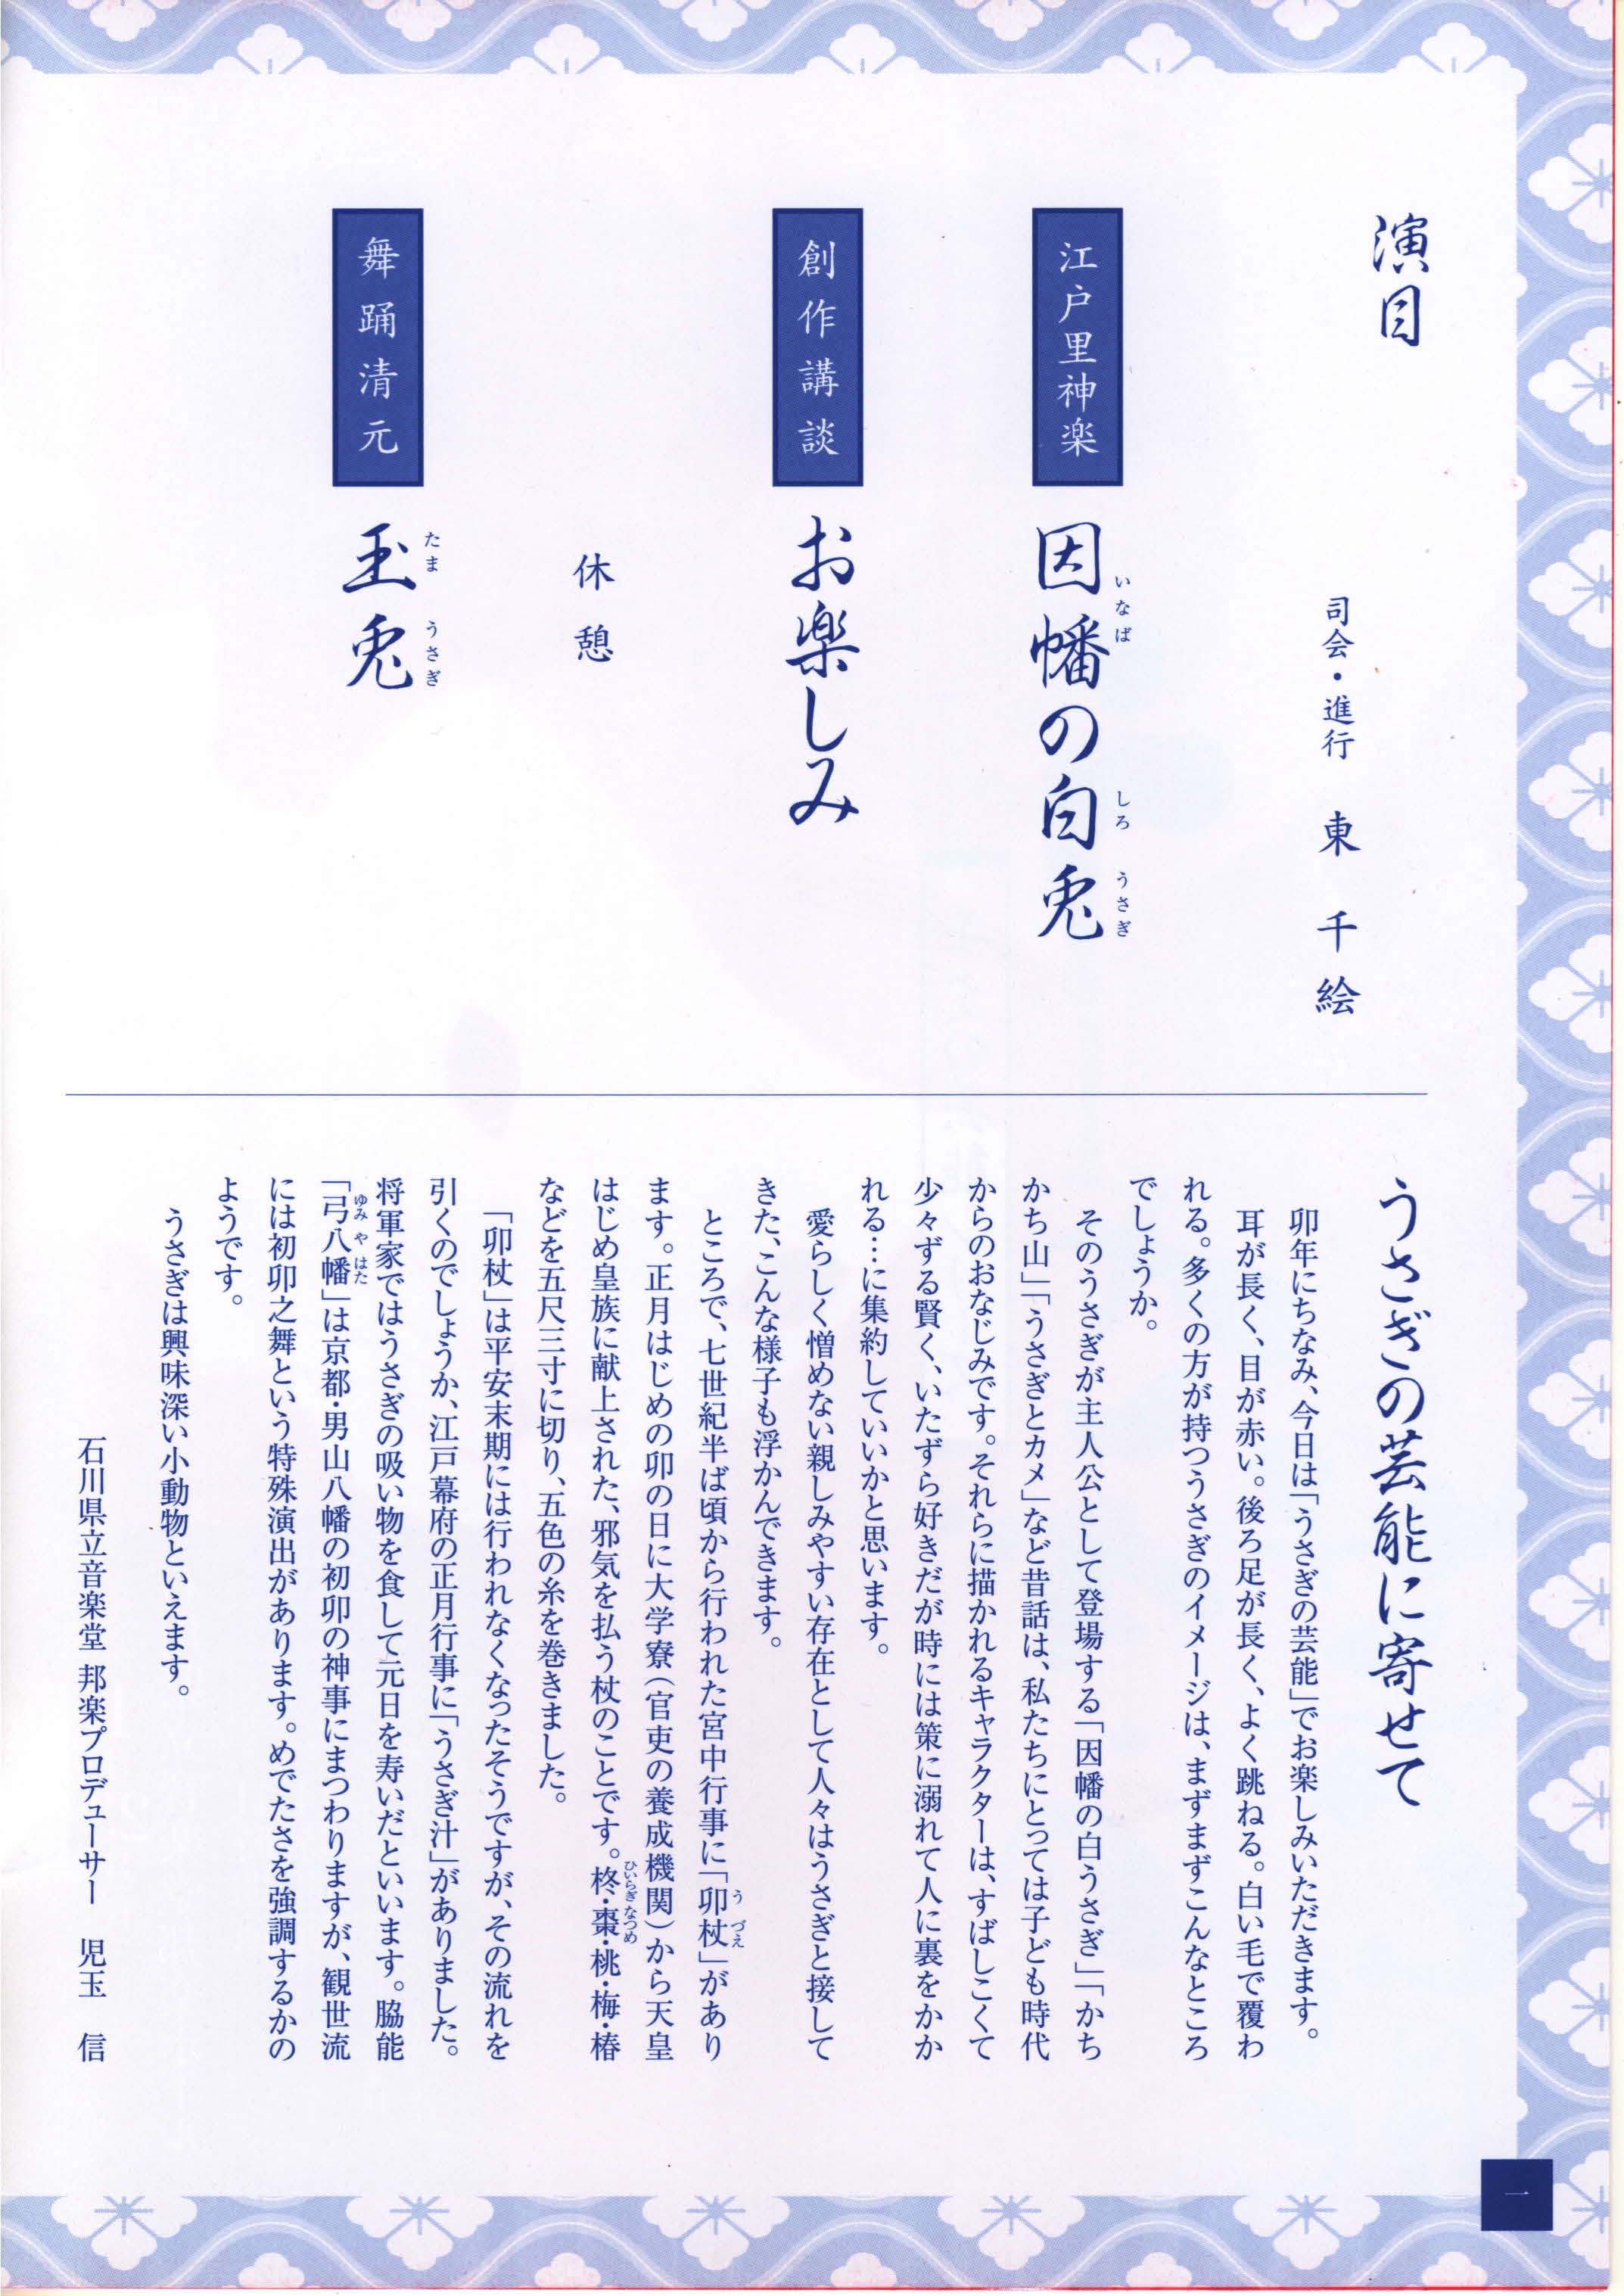 演目
司会・進行　東　千絵
江戸里神楽
因幡の白兎
いなば　しろ　うさぎ
創作講談
お楽しみ
休憩
舞踊清元
玉兎
たま　うさぎ
うさぎの芸能に寄せて
卯年にちなみ、今日は「うさぎの芸能」でお楽しみいただきます。
耳が長く、目が赤い。後ろ足が長く、よく跳ねる。白い毛で覆わ
れる。多くの方が持つうさぎのイメージは、まずまずこんなところ
でしょうか。
そのうさぎが主人公として登場する「因幡の白うさぎ」「かち
かち山」「うさぎとカメ」など昔話は、私たちにとっては子ども時代
からのおなじみです。それらに描かれるキャラクターは、すばしこくて
少々ずる賢く、いたずら好きだが時には策に溺れて人に裏をかか
れる…に集約していいかと思います。
愛らしく憎めない親しみやすい存在として人々はうさぎと接して
きた、こんな様子も浮かんできます。
ところで、七世紀半ば頃から行われた宮中行事に「卯杖」があり
うづえ
ます。正月はじめの卯の日に大学寮（官吏の養成機関）から天皇
はじめ皇族に献上された、邪気を払う杖のことです。柊・棗・桃・梅・椿
ひいらぎ　なつめ
などを五尺三寸に切り、五色の糸を巻きました。
「卯杖」は平安末期には行われなくなったそうですが、その流れを
引くのでしょうか、江戸幕府の正月行事に「うさぎ汁」がありました。
将軍家ではうさぎの吸い物を食して元日を寿いだといいます。脇能
「弓八幡」は京都・男山八幡の初卯の神事にまつわりますが、観世流
ゆみやはた
には初卯之舞という特殊演出があります。めでたさを強調するかの
ようです。
うさぎは興味深い小動物といえます。
石川県立音楽堂 邦楽プロデューサー　児玉　信
一